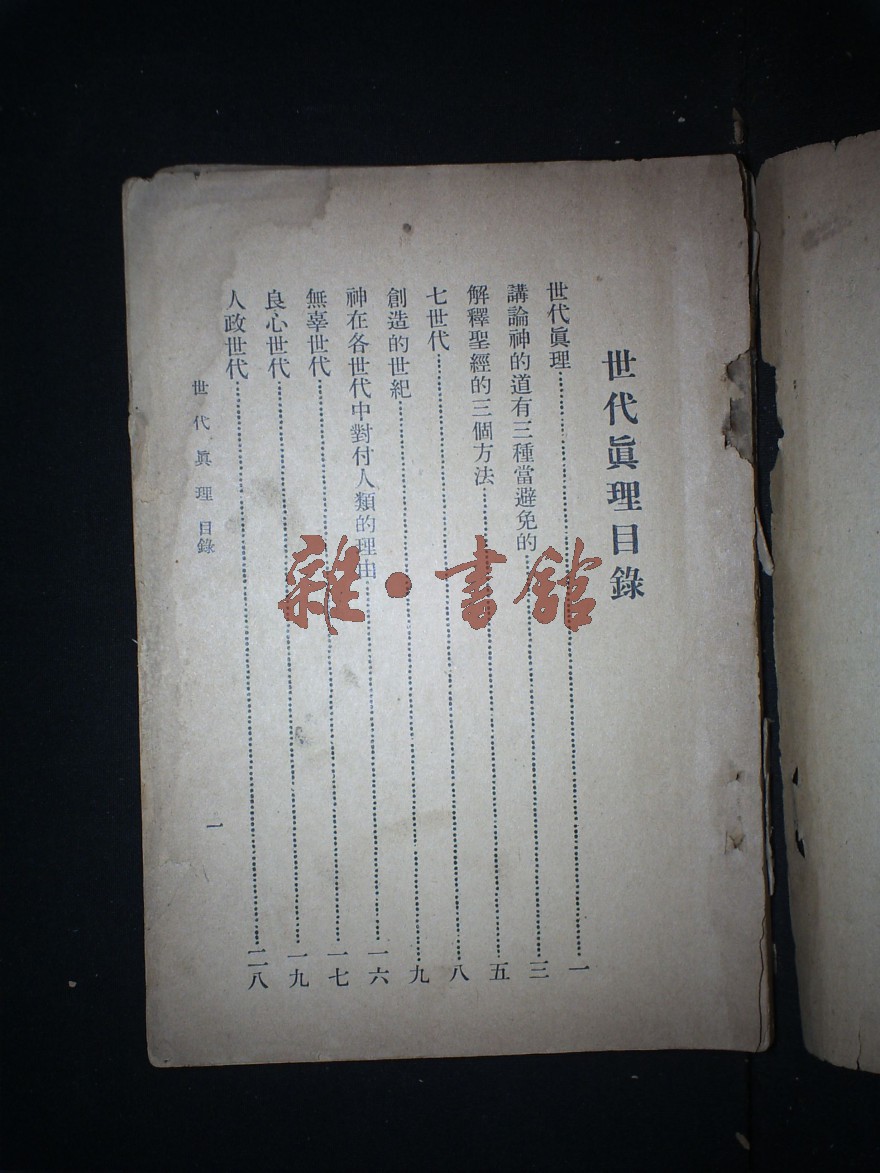 世代眞理目錄
世代眞理……一
講論神的道有三種當避免的……三
解釋聖經的三個方法……五
七世代……八
創造的世紀……九
神在各世代中對付人類的理由……一六
無辜世代……一七
良心世代……一九
人政世代……二八
世代眞理 目錄
一
雜·書館